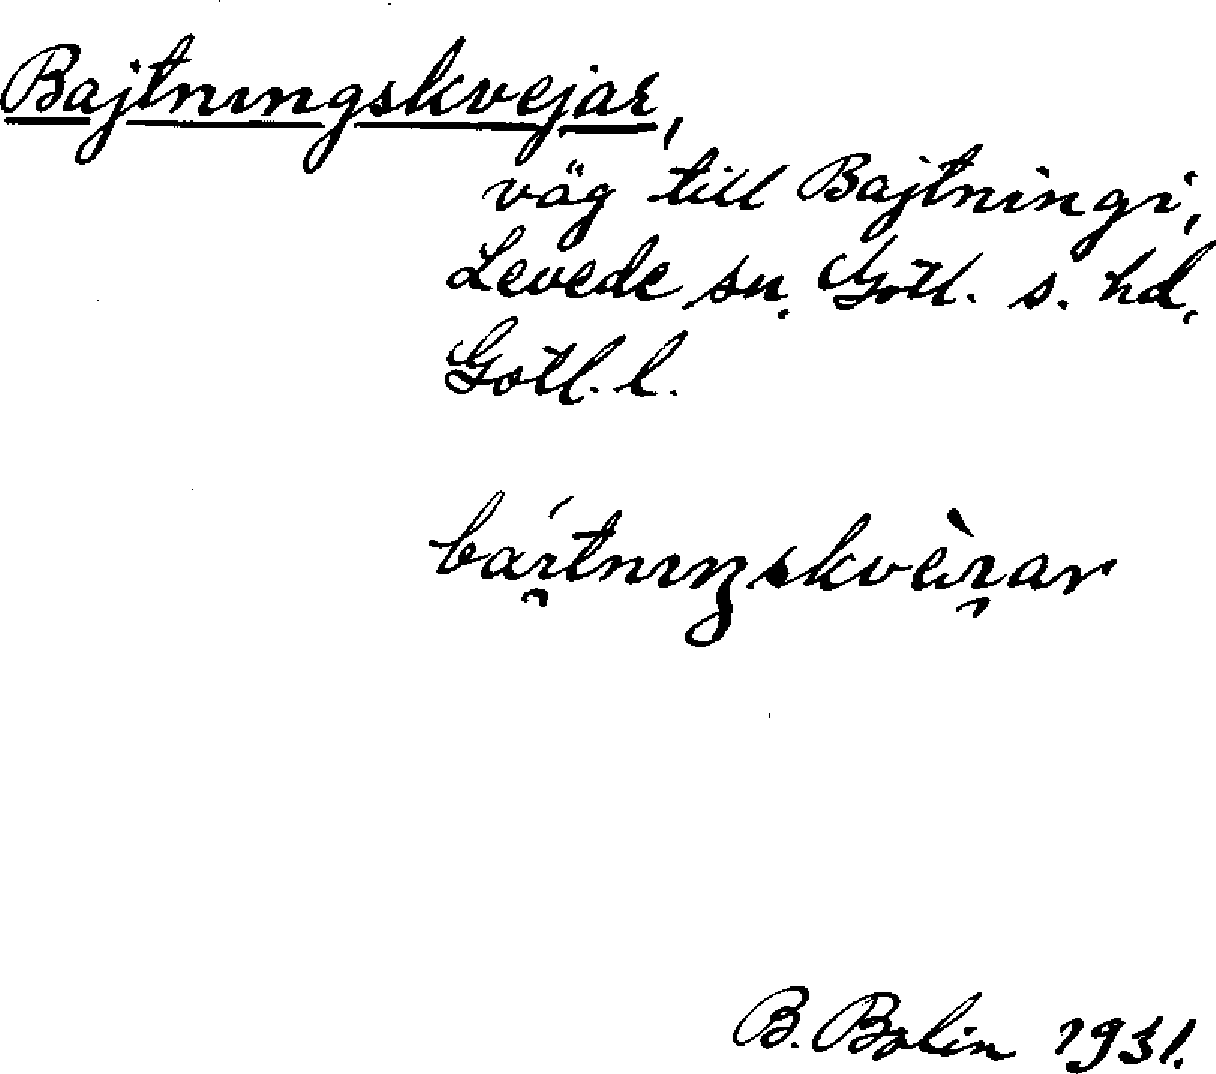 Bajtningskvejar,
väg till Bajtningi,
Levede sn. Gotl. s. hd.
Gotl. l.
bái̯tnıŋskvèi̯ar
B. Bolin 1931.